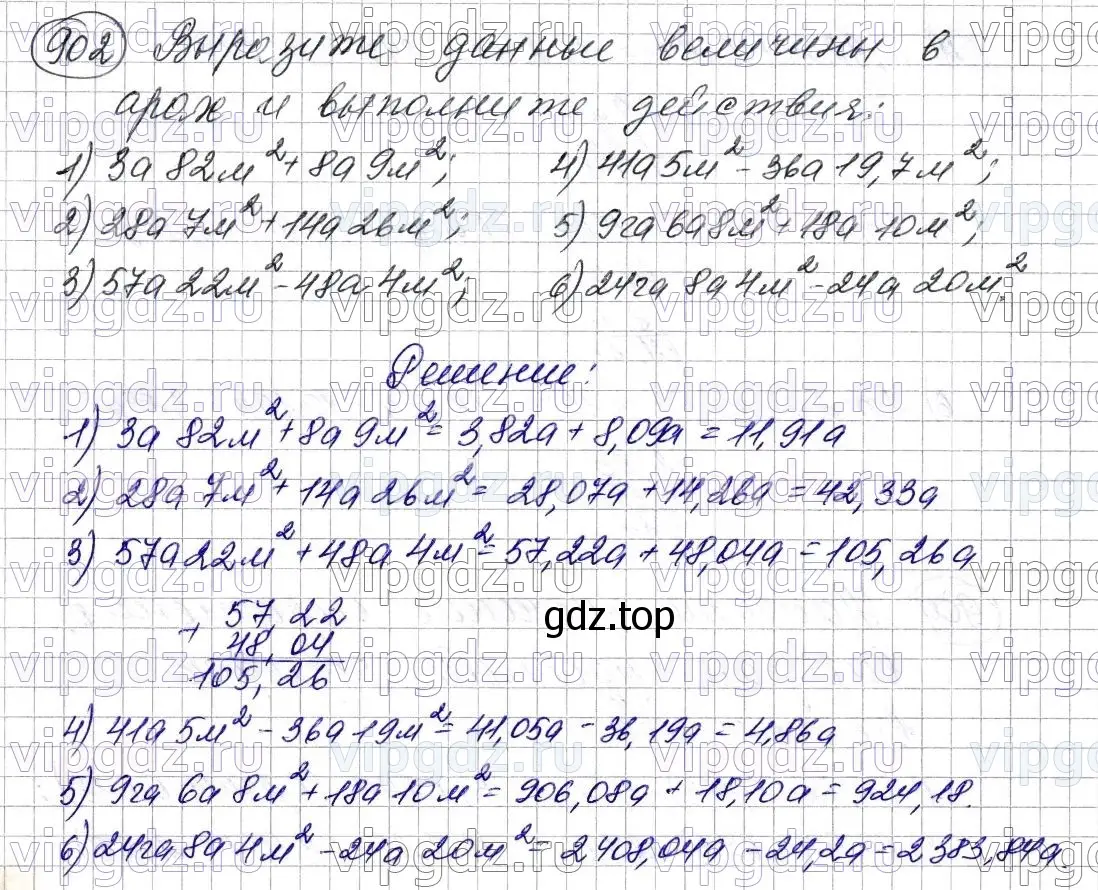 902 Выразите данные величины в
арах и выполните действия:
1) 3а 82м²+8а 9м²; 4) 41а 5м²-36а 19,7м²;
2) 28а 7м²+14а 26м²; 5) 9га 6а 8м²+18а 10м²;
3) 57а 22м²-48а 4м²; 6) 24га 8а 4м²-24а 20м².
Решение:
1) 3а 82м²+8а 9м²= 3,82а+8,09а=11,91а
2) 28а 7м²+14а 26м²= 28,07а+14,26а=42,33а
3) 57а 22м²+48а 4м²=57,22а+48,04а=105,26а
+ 57,22
48,04
105,26
gdz.top
4) 41а 5м²-36а 19м²=41,05а-36,19а=4,86а
5) 9га 6а 8м²+18а 10м²=906,08а+18,10а=924,18.
6) 24га 8а 4м²-24а 20м²=2408,04а-24,2а=2383,84а.
vipgdz.ru